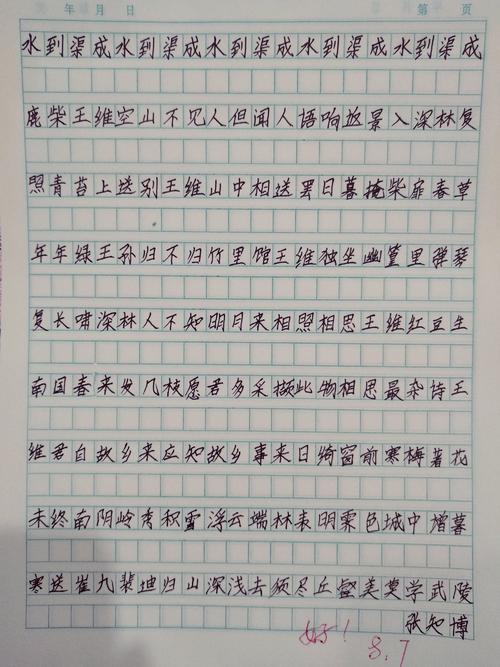 年 月 日 第 页
水到渠成水到渠成水到渠成水到渠成水到渠成
鹿柴王维空山不见人但闻人语响返景入深林复
照青苔上送别王维山中相送罢日暮掩柴扉春草
年年绿王孙归不归竹里馆王维独坐幽篁里弹琴
复长啸深林人不知明月来相照相思王维红豆生
南国春来发几枝愿君多采撷此物相思最杂诗王
维君自故乡来应知故乡事来日绮窗前寒梅著花
未终南阴岭秀积雪浮云端林表明霁色城中增暮
寒送崔九裴迪归山深浅去须尽丘壑美莫学武陵
张知博
好！
8.7